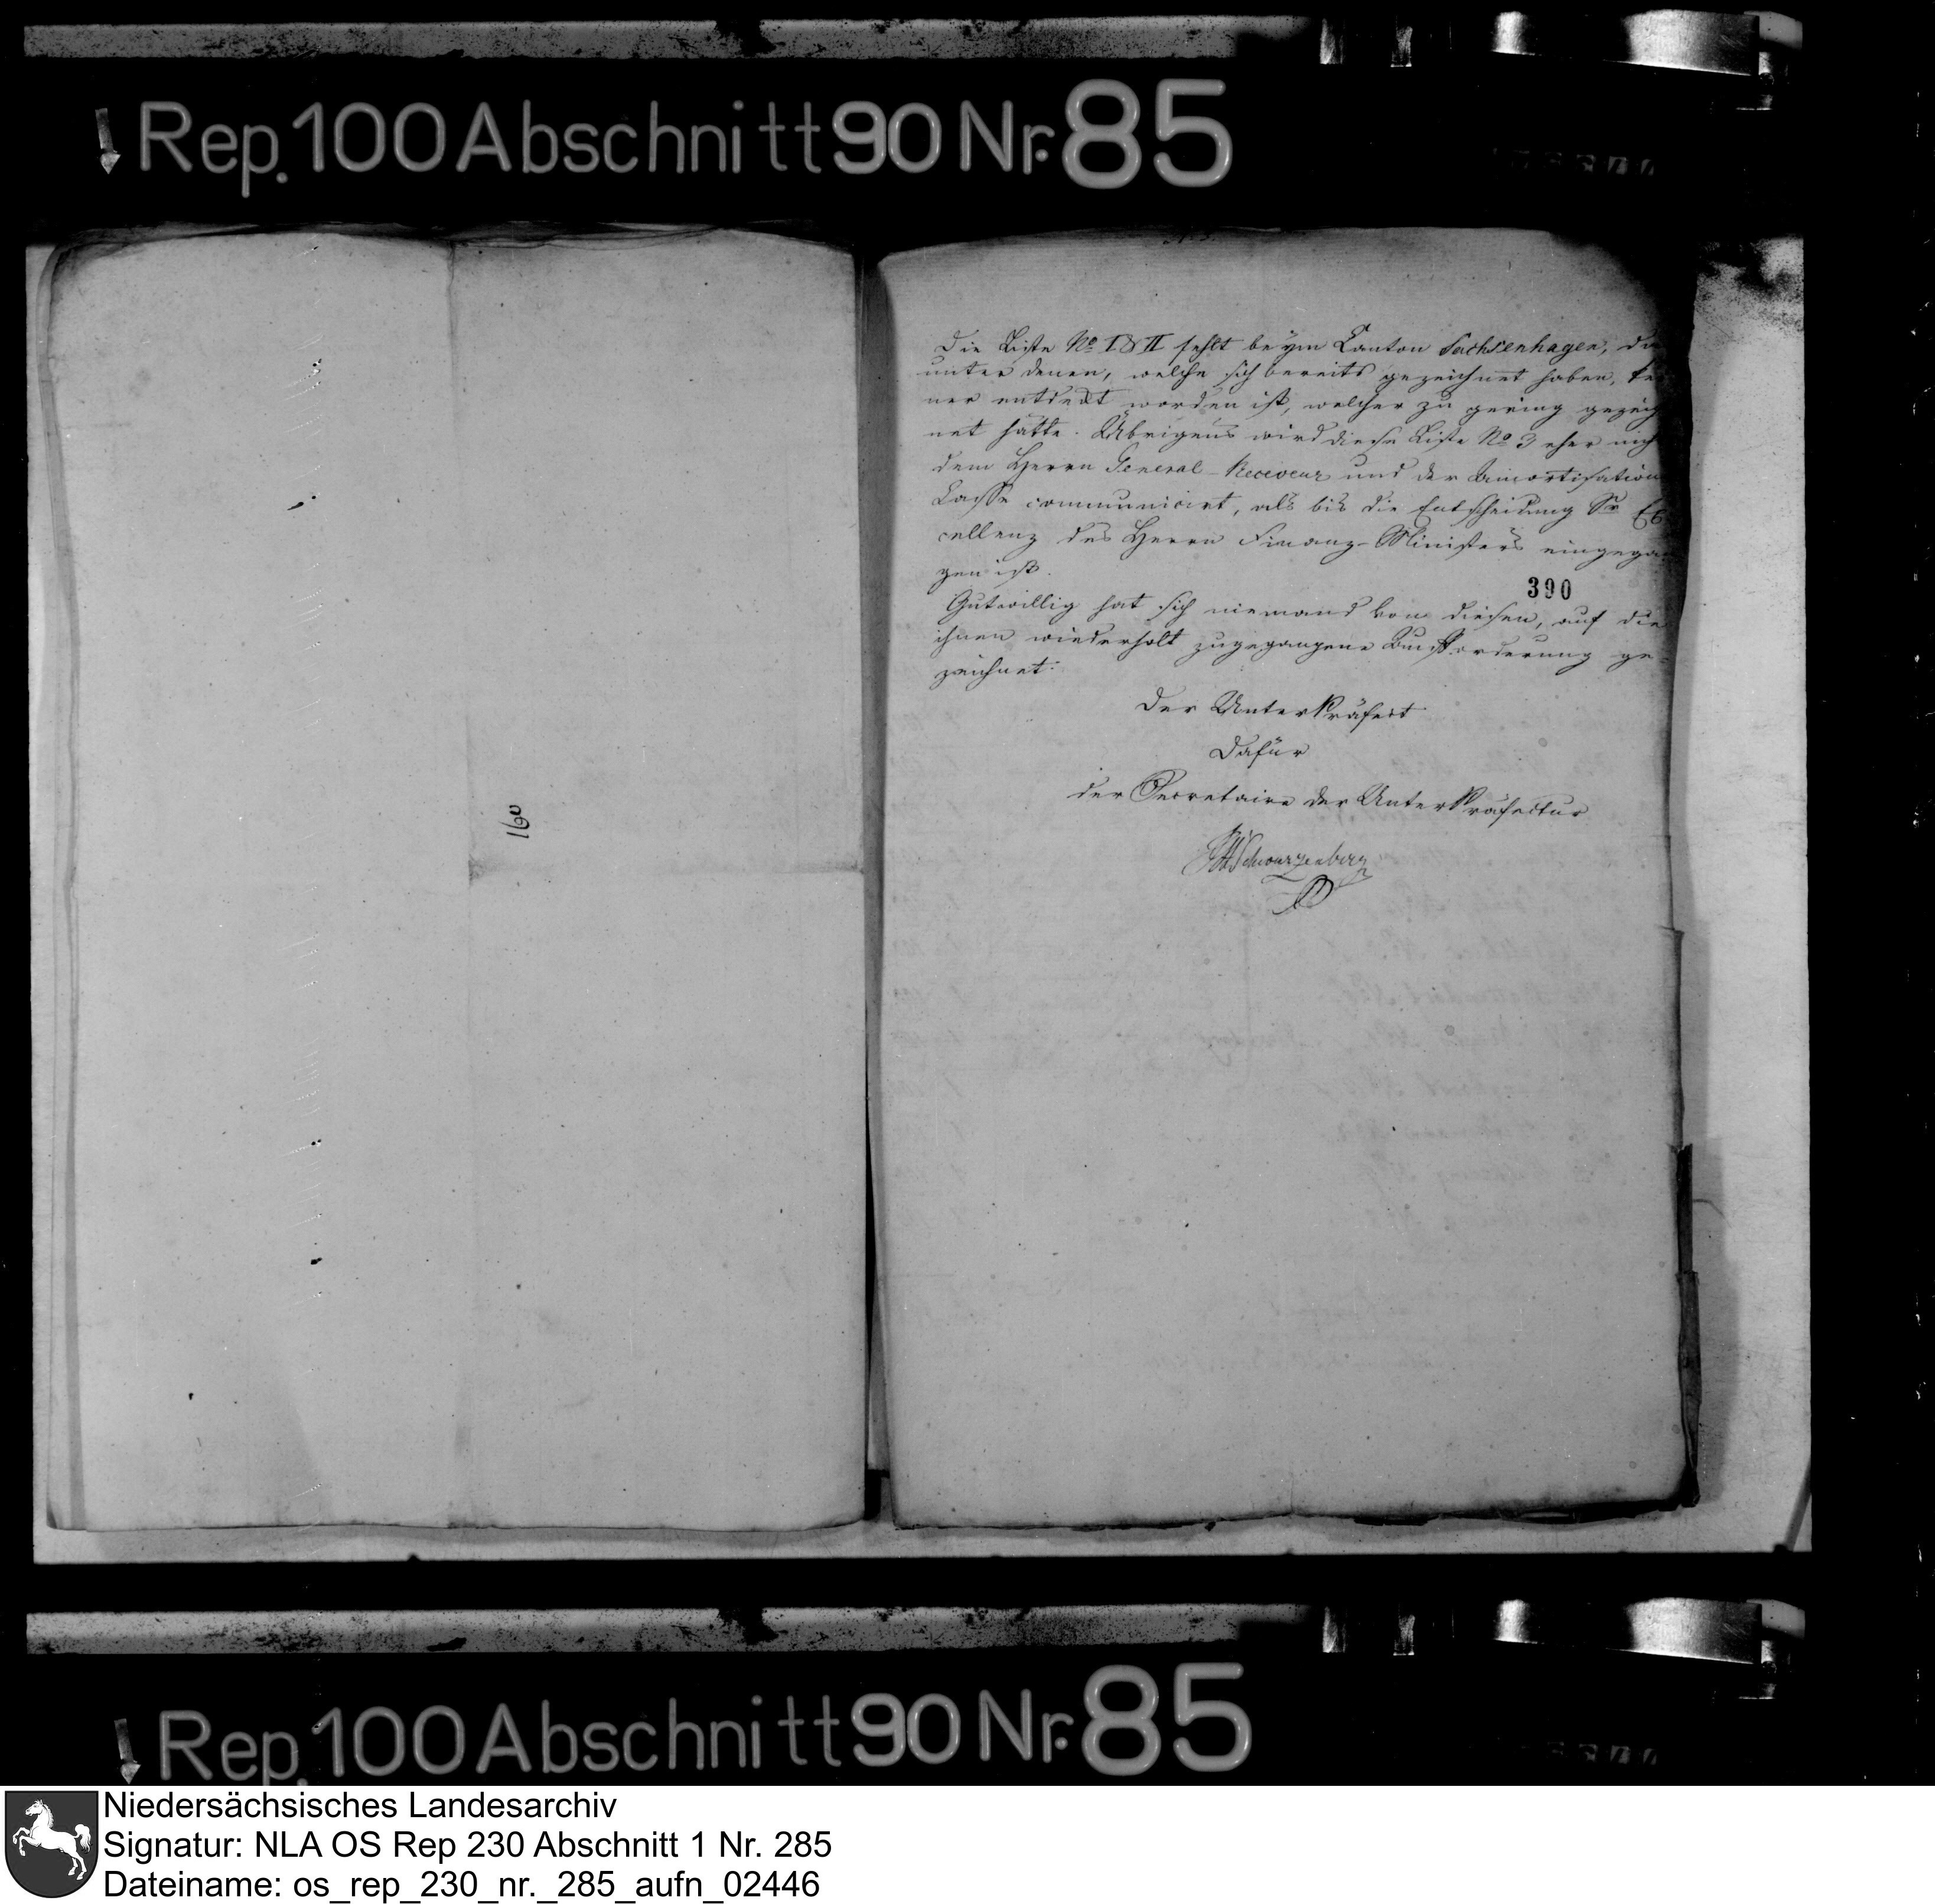 Rep. 100 Abschnitt 90 Nr. 85
160
Die Liste No I & II fehlt beym Canton Sachsenhagen, da
unter denen, welche sich bereits gezeichnet haben, kei
ner entdekt worden ist, welcher zu gering gezeich
net hätte. Übrigens wird diese Liste No 3 eher nich
dem Herrn General-Receveur und der Amortisation
Casse communicirt, als bis die Entscheidung Sr Ex
cellenz des Herrn Finanz-Ministers eingegan
gen ist.
390
Gutwillig hat sich niemand von diesen, auf die
ihnen wiederholt zugegangene Aufforderung ge=
zeichnet.
Der UnterPräfect
Dafür
der Secretaire der UnterPräfectur
Schwarzenberg
Rep. 100 Abschnitt 90 Nr. 85
Niedersächsisches Landesarchiv
Signatur: NLA OS Rep 230 Abschnitt 1 Nr. 285
Dateiname: os_rep_230_nr._285_aufn_02446